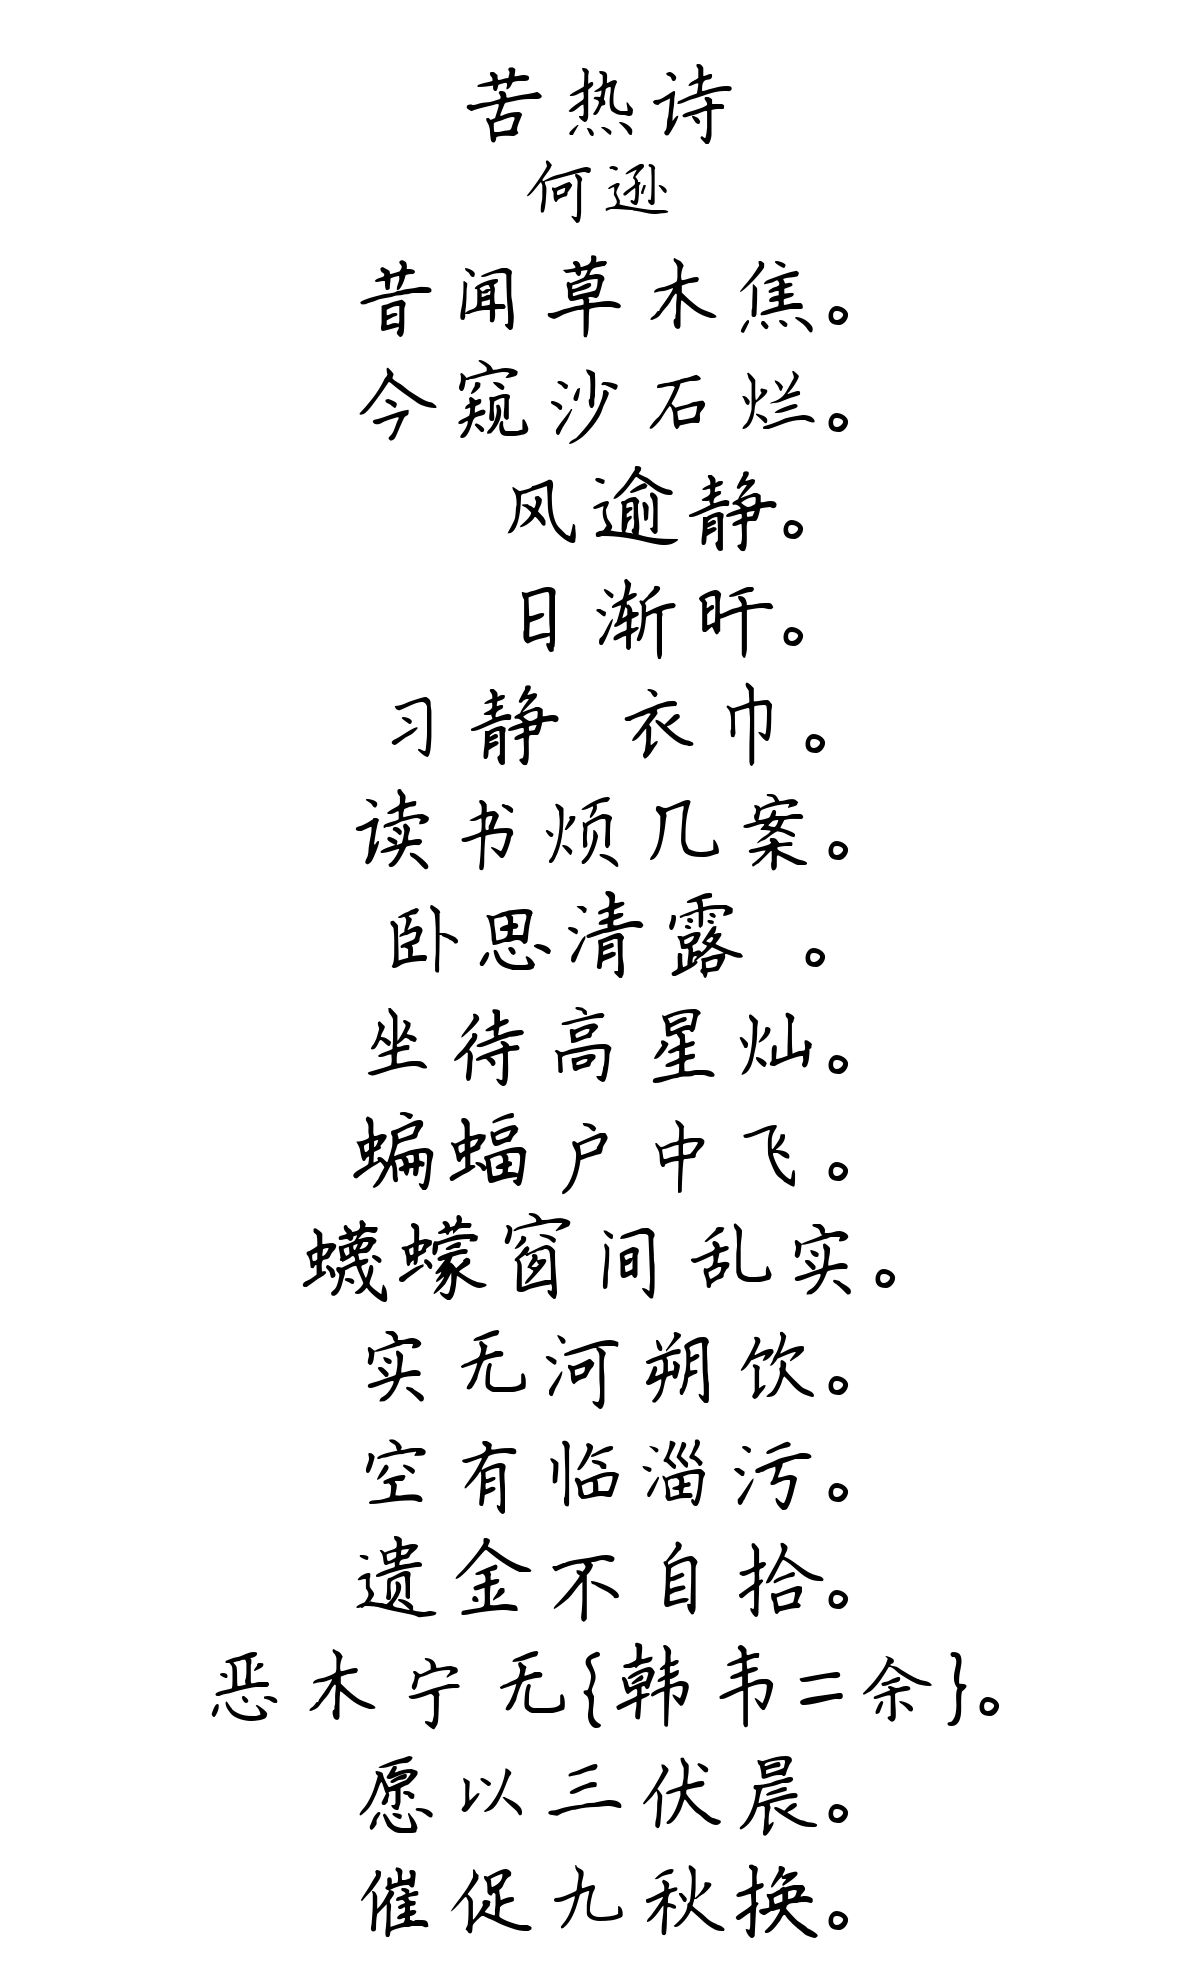 苦热诗
何逊
昔闻草木焦。
今窥沙石烂。
风逾静。
日渐旰。
习静 衣巾。
读书烦几案。
卧思清露 。
坐待高星灿。
蝙蝠户中飞。
蠛蠓窗间乱实。
实无河朔饮。
空有临淄污。
遗金不自拾。
恶木宁无{韩韦=余}。
愿以三伏晨。
催促九秋换。